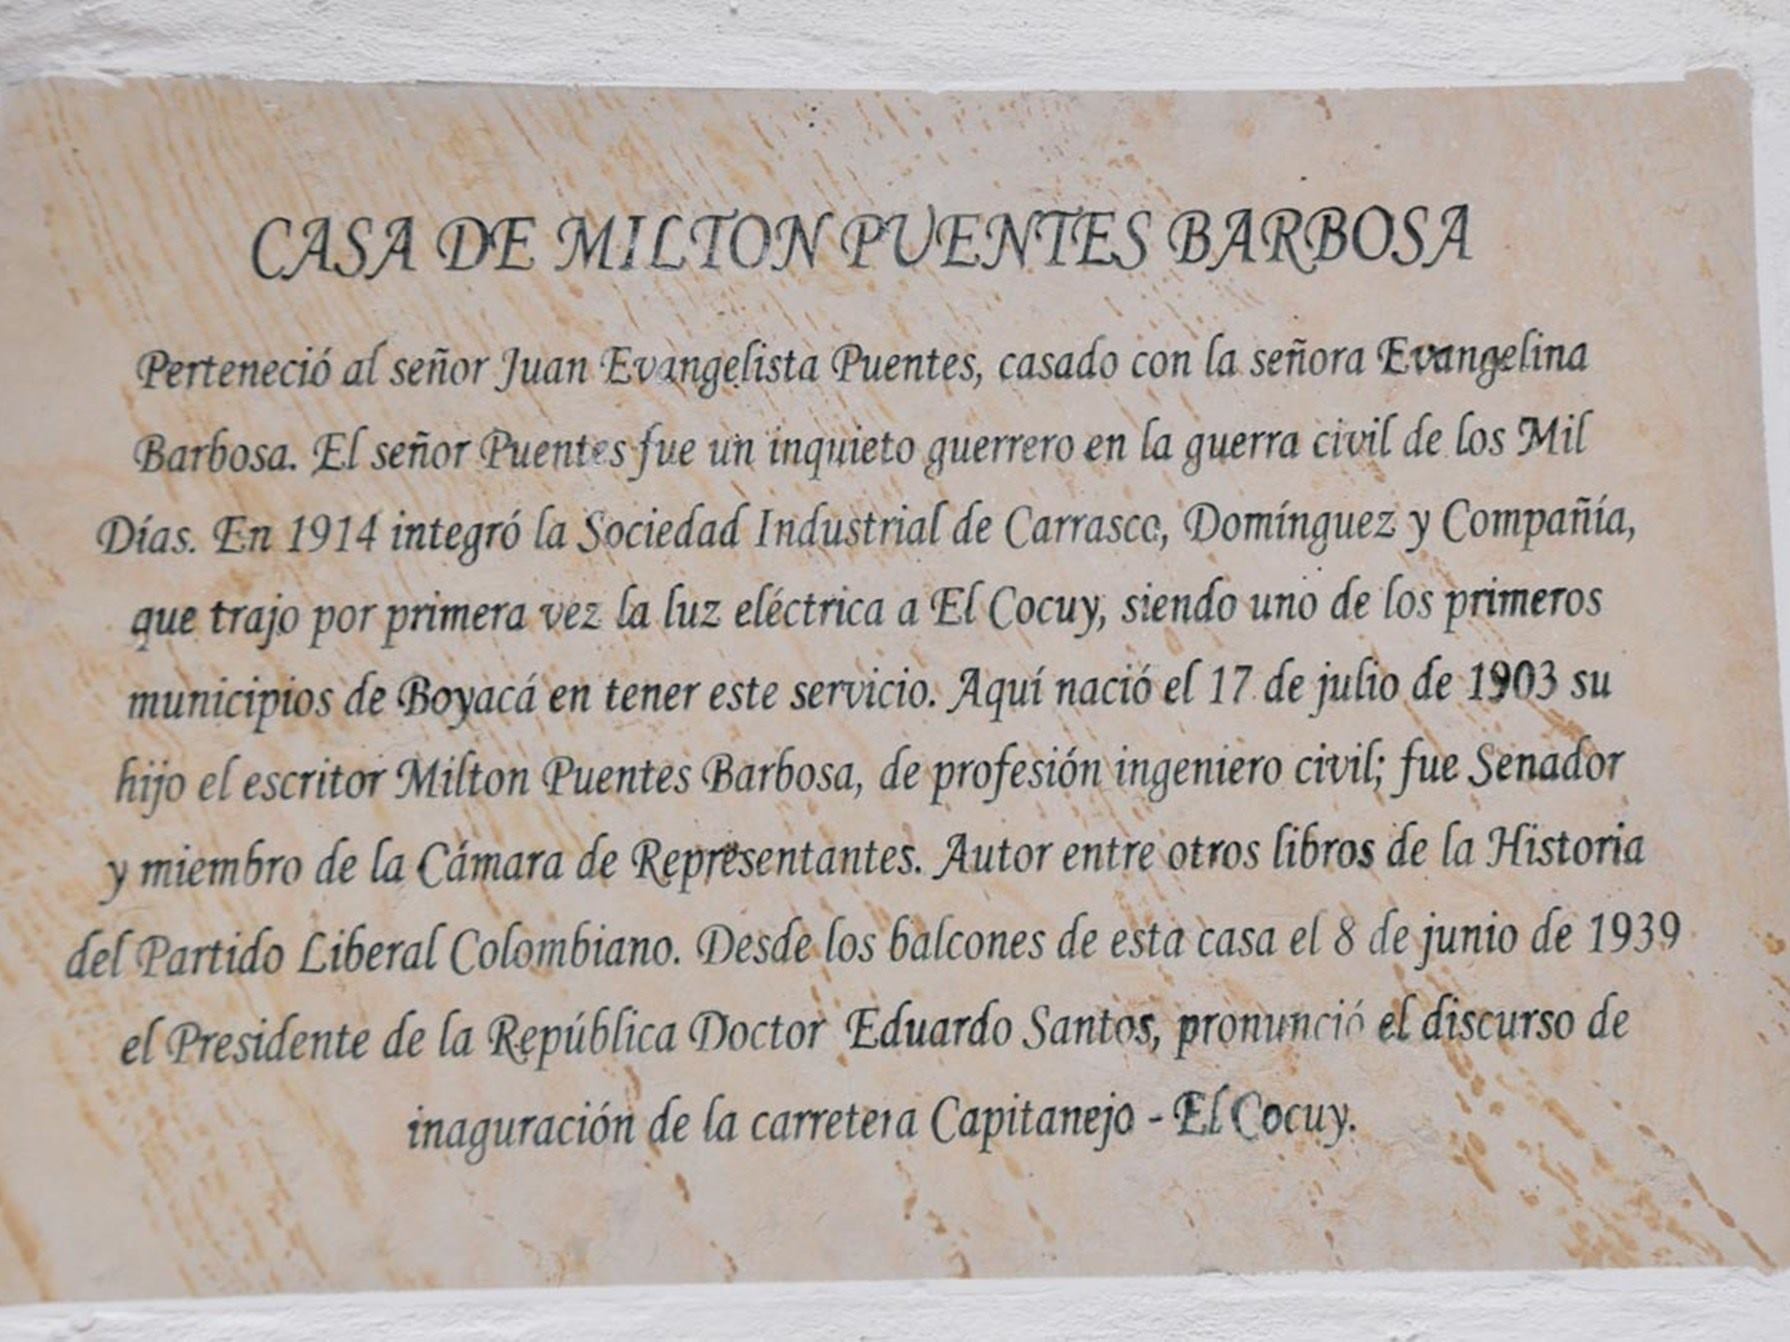 CASA DE MILTON PUENTES BARBOSA
Perteneció al señor Juan Evangelista Puentes, casado con la señora Evangelina
Barbosa. El señor Puentes fue un inquieto guerrero en la guerra civil de los Mil
Días. En 1914 integró la Sociedad Industrial de Carrasco, Domínguez y Compañía,
que trajo por primera vez la luz eléctrica a El Cocuy, siendo uno de los primeros
municipios de Boyacá en tener este servicio. Aquí nació el 17 de julio de 1903 su
hijo el escritor Milton Puentes Barbosa, de profesión ingeniero civil; fue Senador
y miembro de la Cámara de Representantes. Autor entre otros libros de la Historia
del Partido Liberal Colombiano. Desde los balcones de esta casa el 8 de junio de 1939
el Presidente de la República Doctor Eduardo Santos, pronunció el discurso de
inaguración de la carretera Capitanejo - El Cocuy.